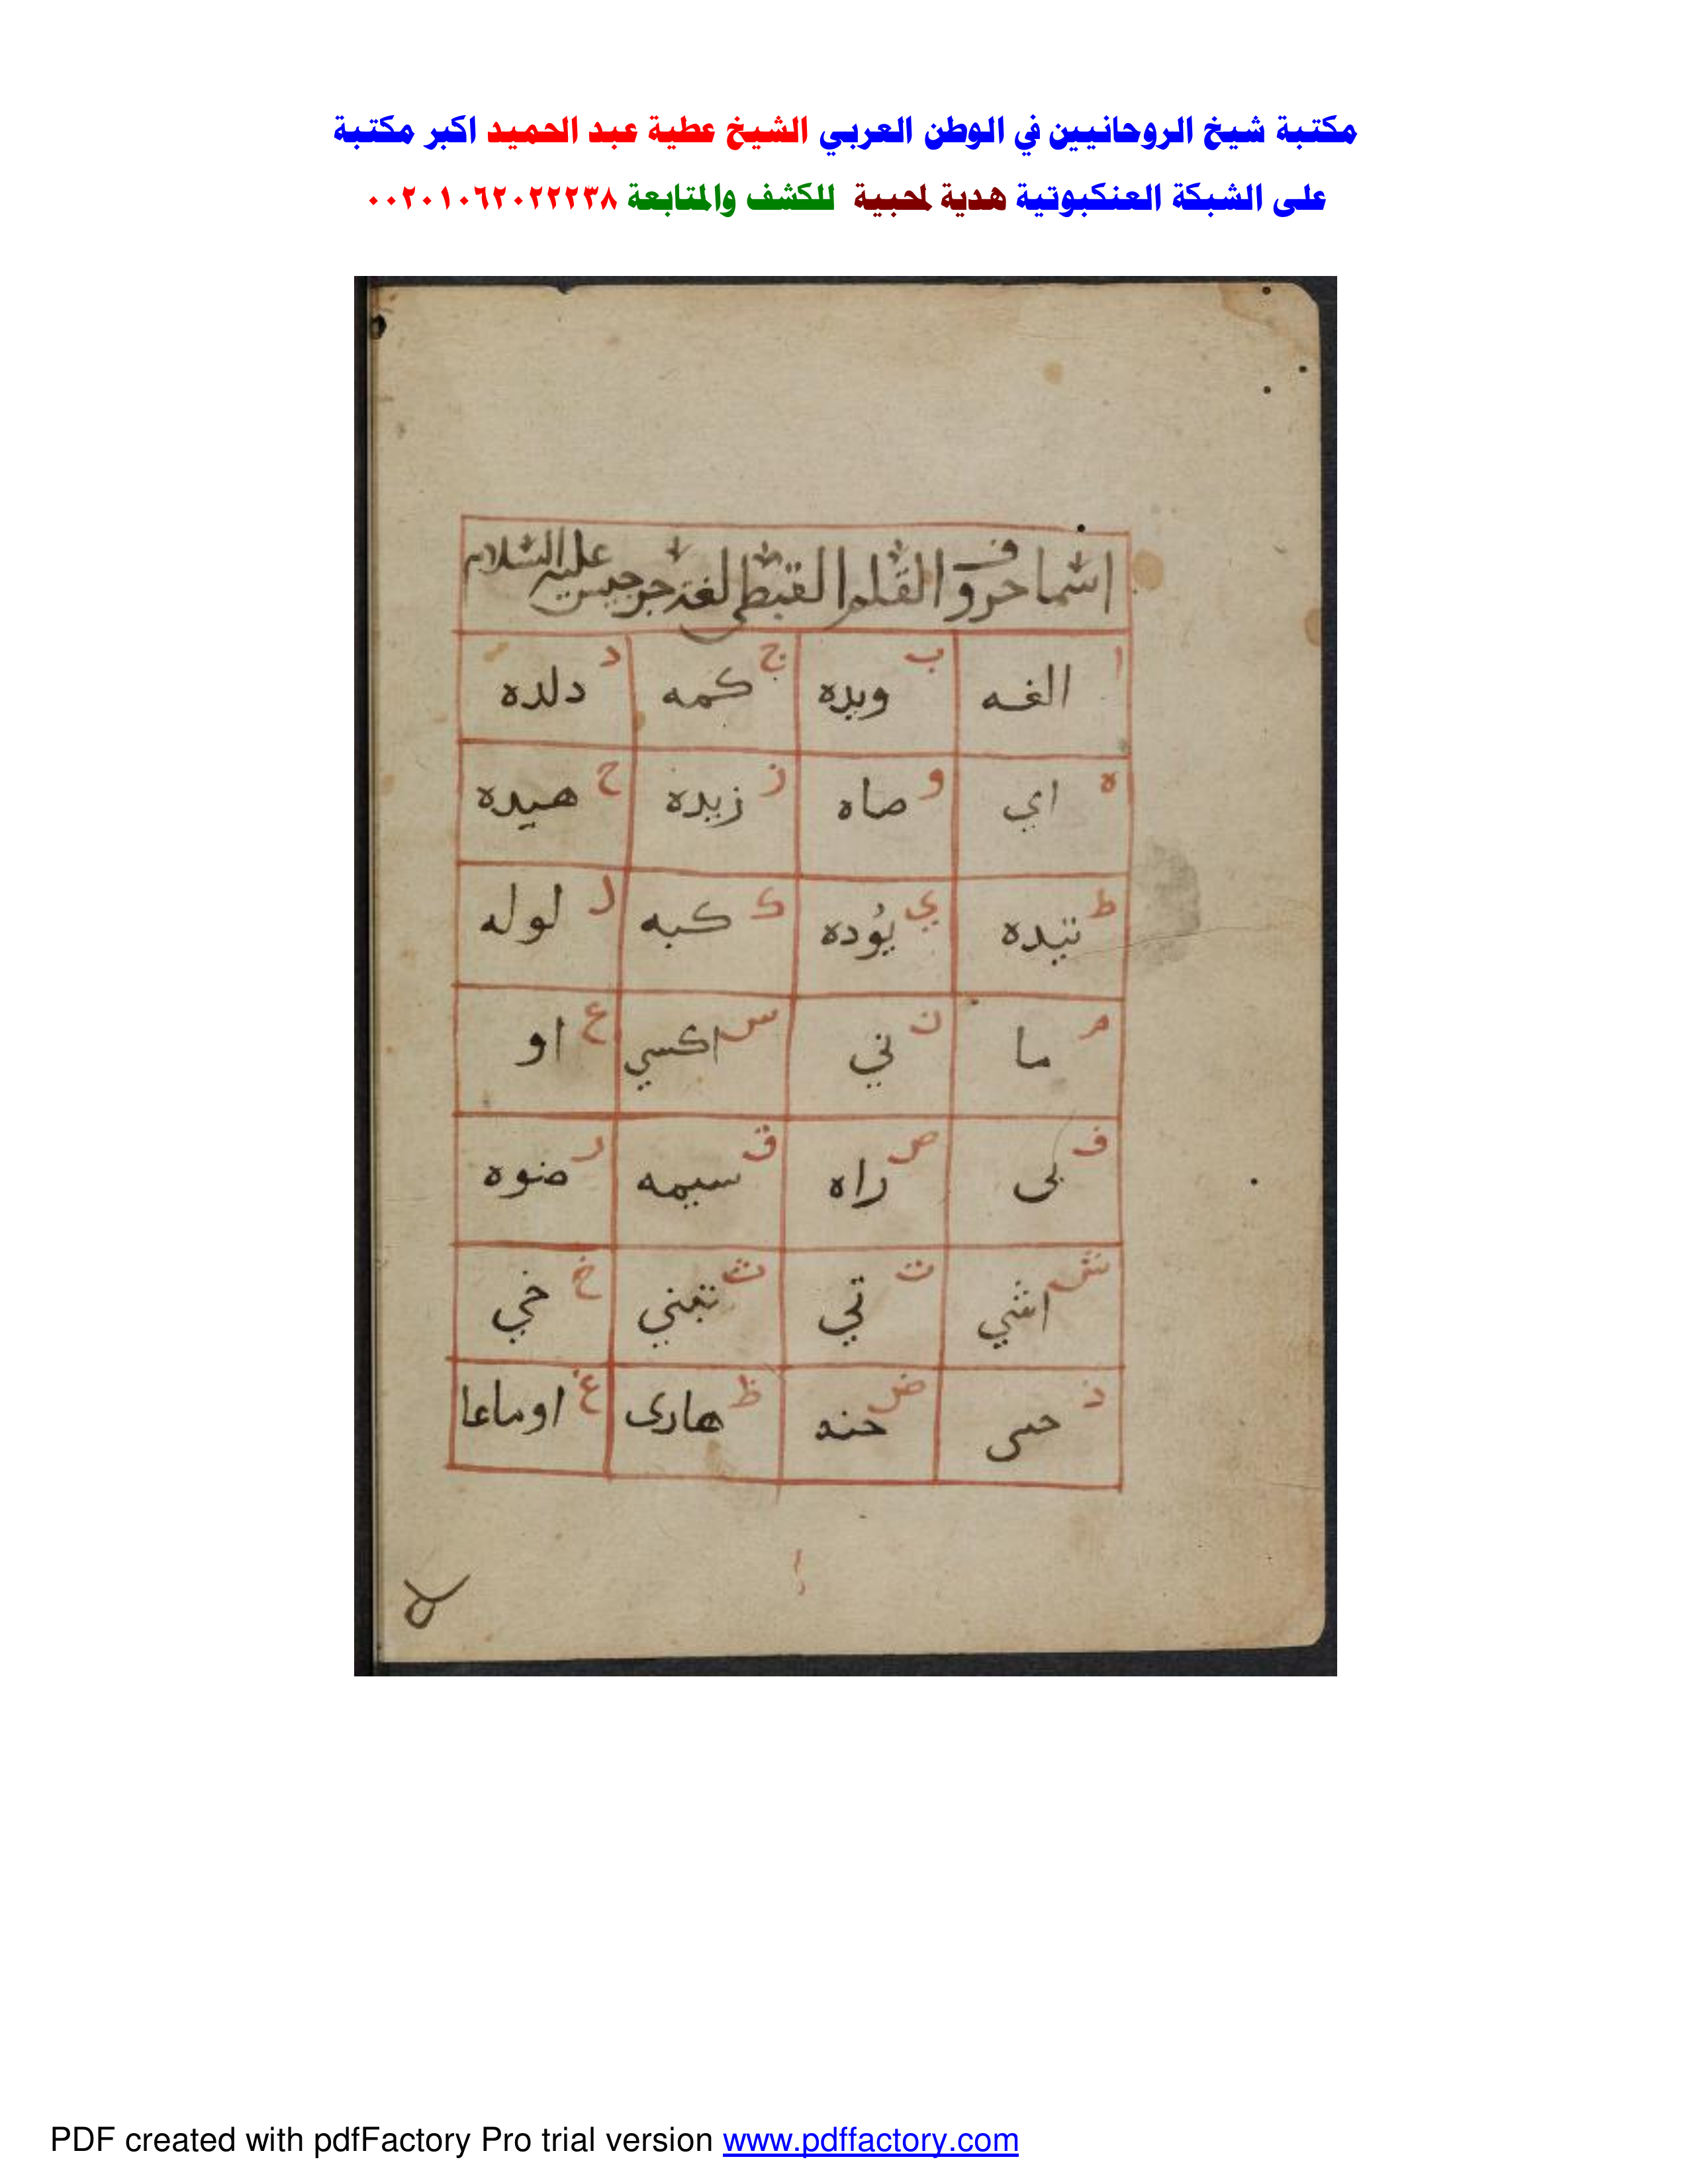 مكتبة شيخ الروحانيين في الوطن العربي الشيخ عطية عبد الحميد اكبر مكتبة
على الشبكة العنكبوتية هدية لمحبية للكشف والمتابعة ٠٠٢٠١٠٦٢٠٢٢٢٣٨
اسما حروف القلم القبطى لغة جرجيس عليه السلام
ا الفه ب ويده ج كمه د دلده
ه اي و صاه ز زيده ح هيده
ط تيده ي يُوده ك كبه ل لوله
م ما ن ني س اكسي ع او
ف بى ص راه ق سيمه ر صوه
ش اشي ت تي ث خ خي
ذ ض ظ هارى غ اوماعا
PDF created with pdfFactory Pro trial version www.pdffactory.com